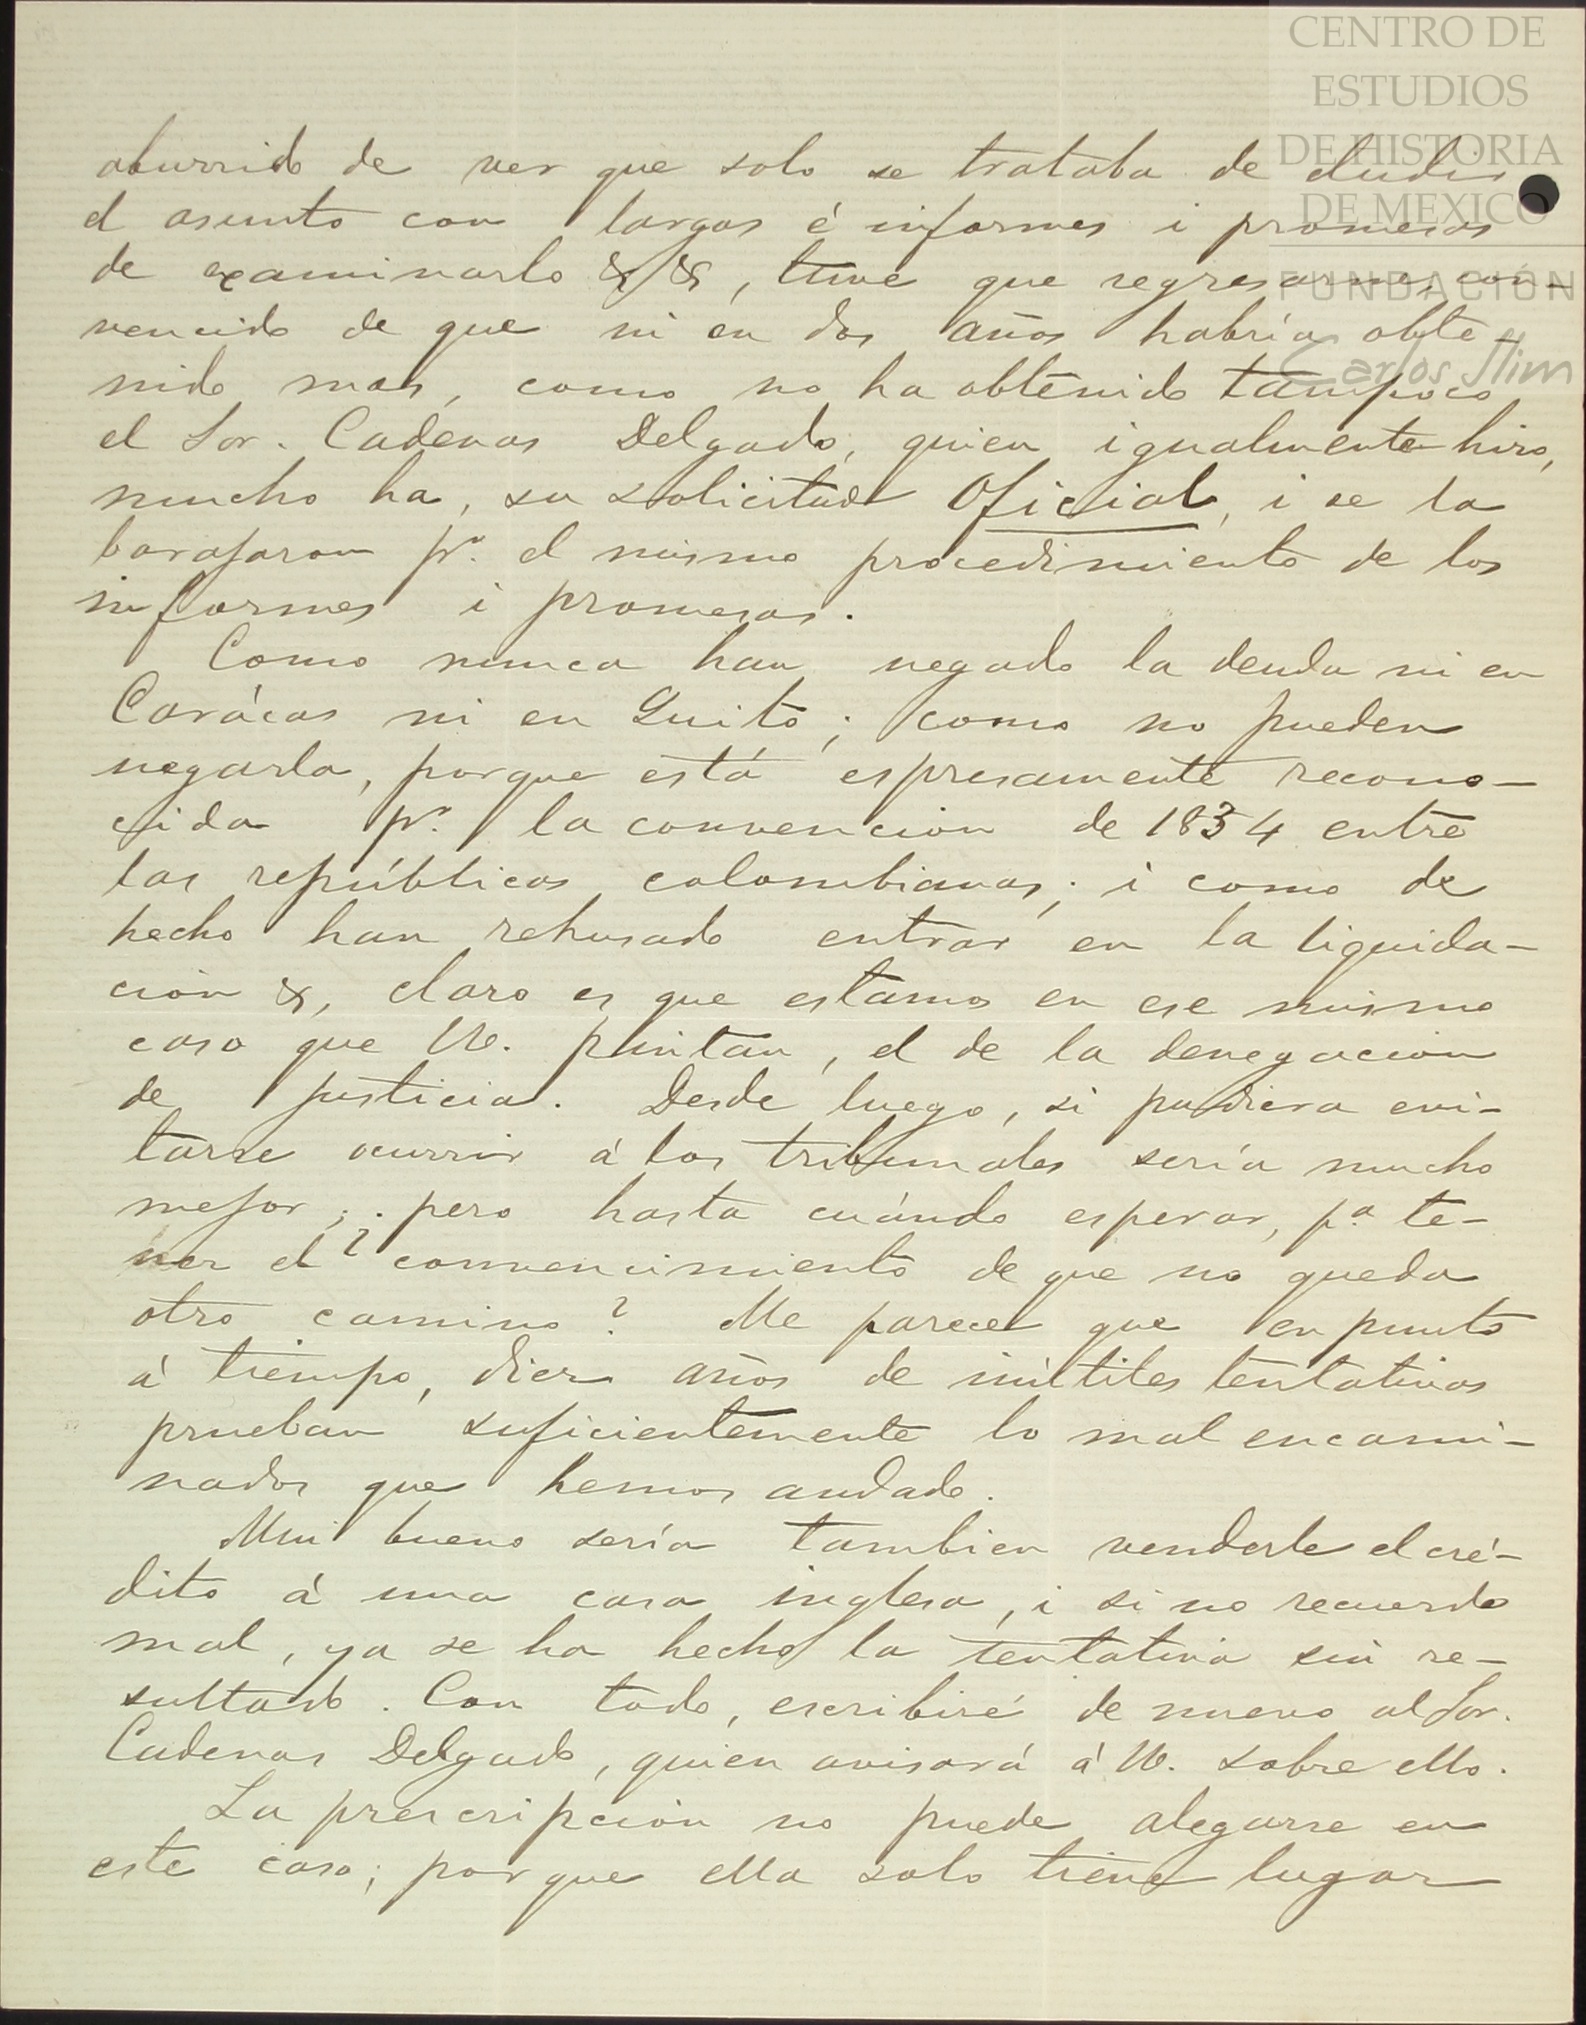 CENTRO DE
ESTUDIOS
DE HISTORIA
DE MEXICO
FUNDACIÓN
Carlos Slim
aburrido de ver que solo se trataba de eludir
el asunto con largas é informes i promesas
de examinarlo & &, tuve que regresarme, con-
vencido de que ni en dos años habría obte-
nido mas, como no ha obtenido tampoco
el Sor. Cadenas Delgado, quien igualmente hizo,
mucho ha, su solicitud Oficial, i se la
barajaron pr. el mismo procedimiento de los
informes i promesas.
Como nunca han negado la deuda ni en
Carácas ni en Quito; como no pueden
negarla, porque está espresamente recono-
cida pr. la convencion de 1834 entre
las repúblicas colombianas; i como de
hecho han rehusado entrar en la liquida-
ción &, claro es que estamos en ese mismo
caso que U. pintan, el de la denegacion
de justicia. Desde luego, si pudiera evi-
tarse ocurrir á los tribunales sería mucho
mejor; pero hasta cuándo esperar, pa. te-
ner el convencimiento de que no queda
otro camino? Me parece que en punto
á tiempo, diez años de inútiles tentativas
prueban suficientemente lo mal encami-
nados que hemos andado.
Mui bueno sería tambien venderle el cré-
dito á una casa inglesa, i si no recuerdo
mal, ya se ha hecho la tentativa sin re-
sultado. Con todo, escribiré de nuevo al Sor.
Cadenas Delgado, quien avisará á U. sobre ello.
La prescripción no puede alegarse en
este caso; porque ella solo tiene lugar